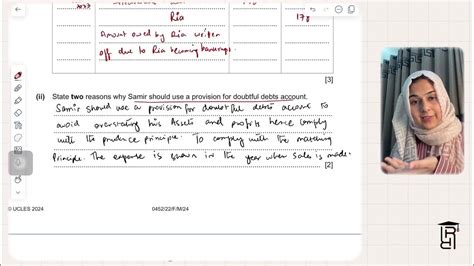 Ria
178
Amount owed by Ria written
off due to Ria becoming bankrupt
[3]
(ii) State two reasons why Samir should use a provision for doubtful debts account.
Samir should use a provision for doubtful debts account to
avoid overstating his Assets and profits hence comply
with the prudence principle. To comply with the matching
Principle. The expense is shown in the year when sales is made.
[2]
© UCLES 2024
0452/22/F/M/24